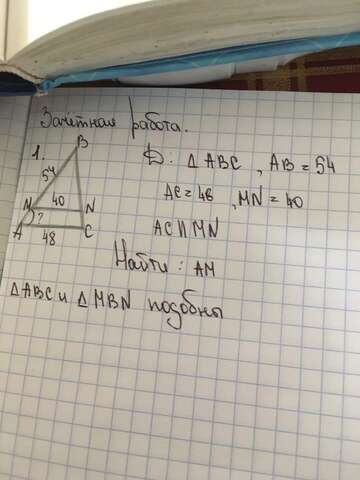 Зачётная работа.
1.
B
54
40
M
N
?
A
48
C
D: △ ABC , AB = 54
AC = 48 , MN = 40
AC || MN
Найти : AM
△ ABC и △ MBN подобны